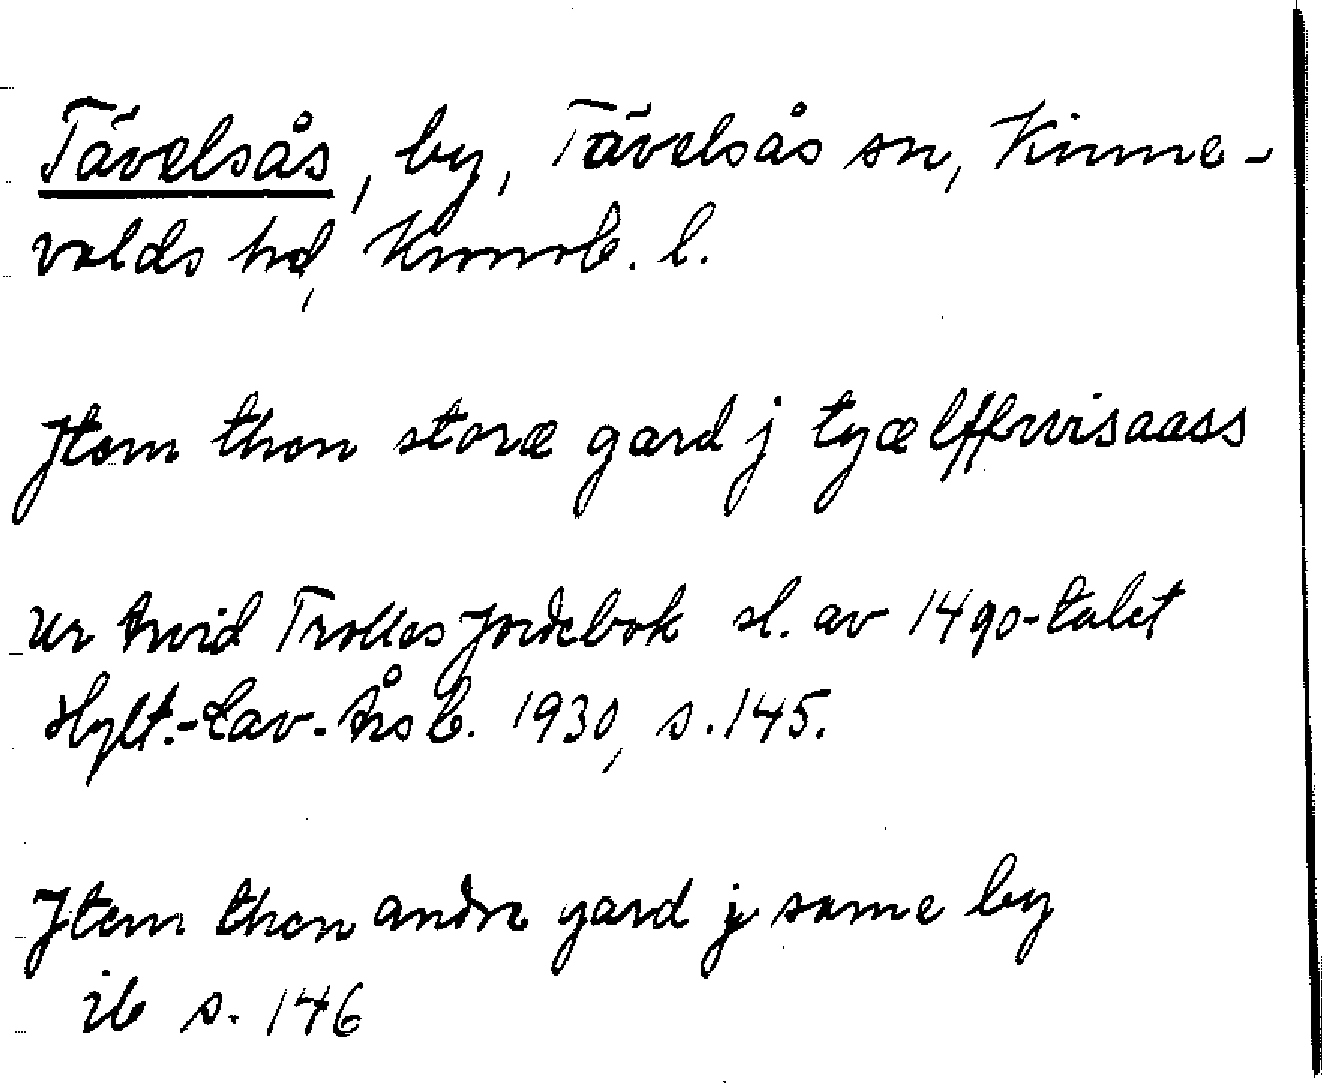 Tävelsås, by, Tävelsås sn, Kinne-
valds hd, Kronob. l.
Jtem then storæ gard j tyælffrwisaass
Ur Arvid Trolles Jordebok sl. av 1490-talet
Hylt.-Cav.-Årsb. 1930, s. 145.
Jtem then andre gard j same by
ib s. 146